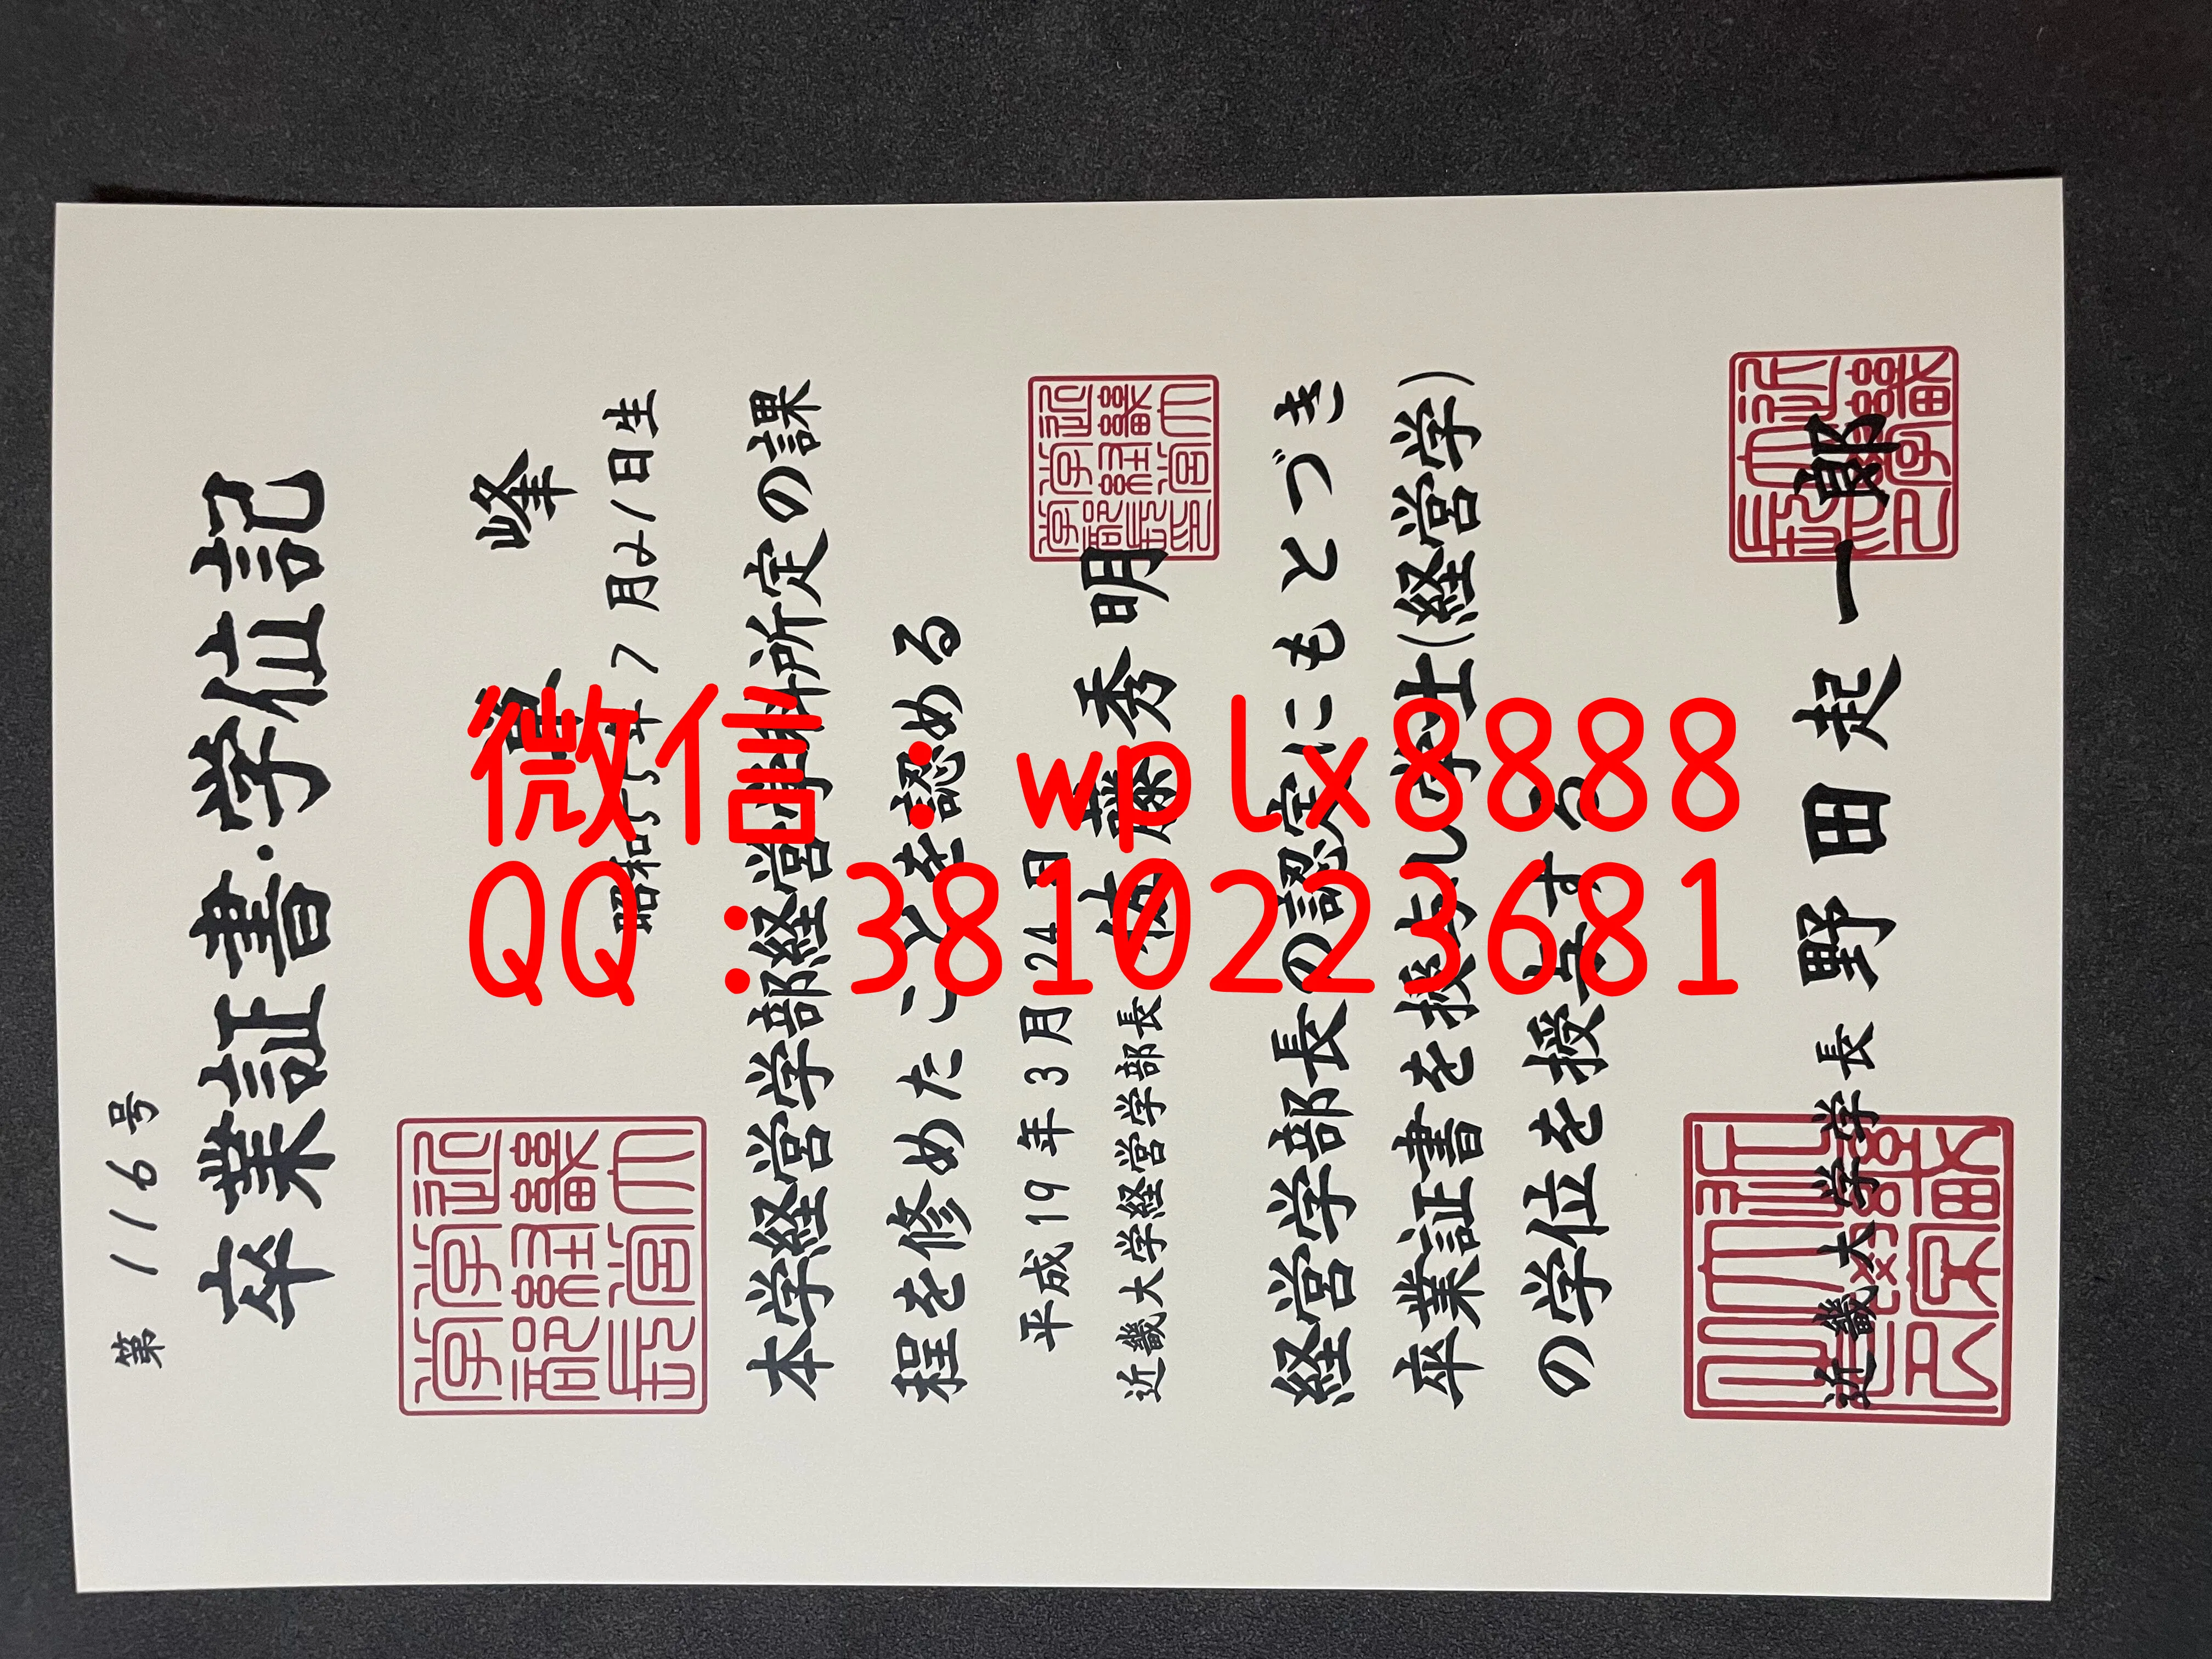 第 116 号
卒業証書·学位記
峰
昭和55年7月21日生
本学経営学部経営学科所定の課
程を修めたことを認める
平成19年3月24日
近畿大学経営学部長 佐藤秀明
経営学部長の認定にもとづき
卒業証書を授与し学士(経営学)
の学位を授与する
近畿大学学長 野田起一郎
微信：wplx8888
QQ：3810223681